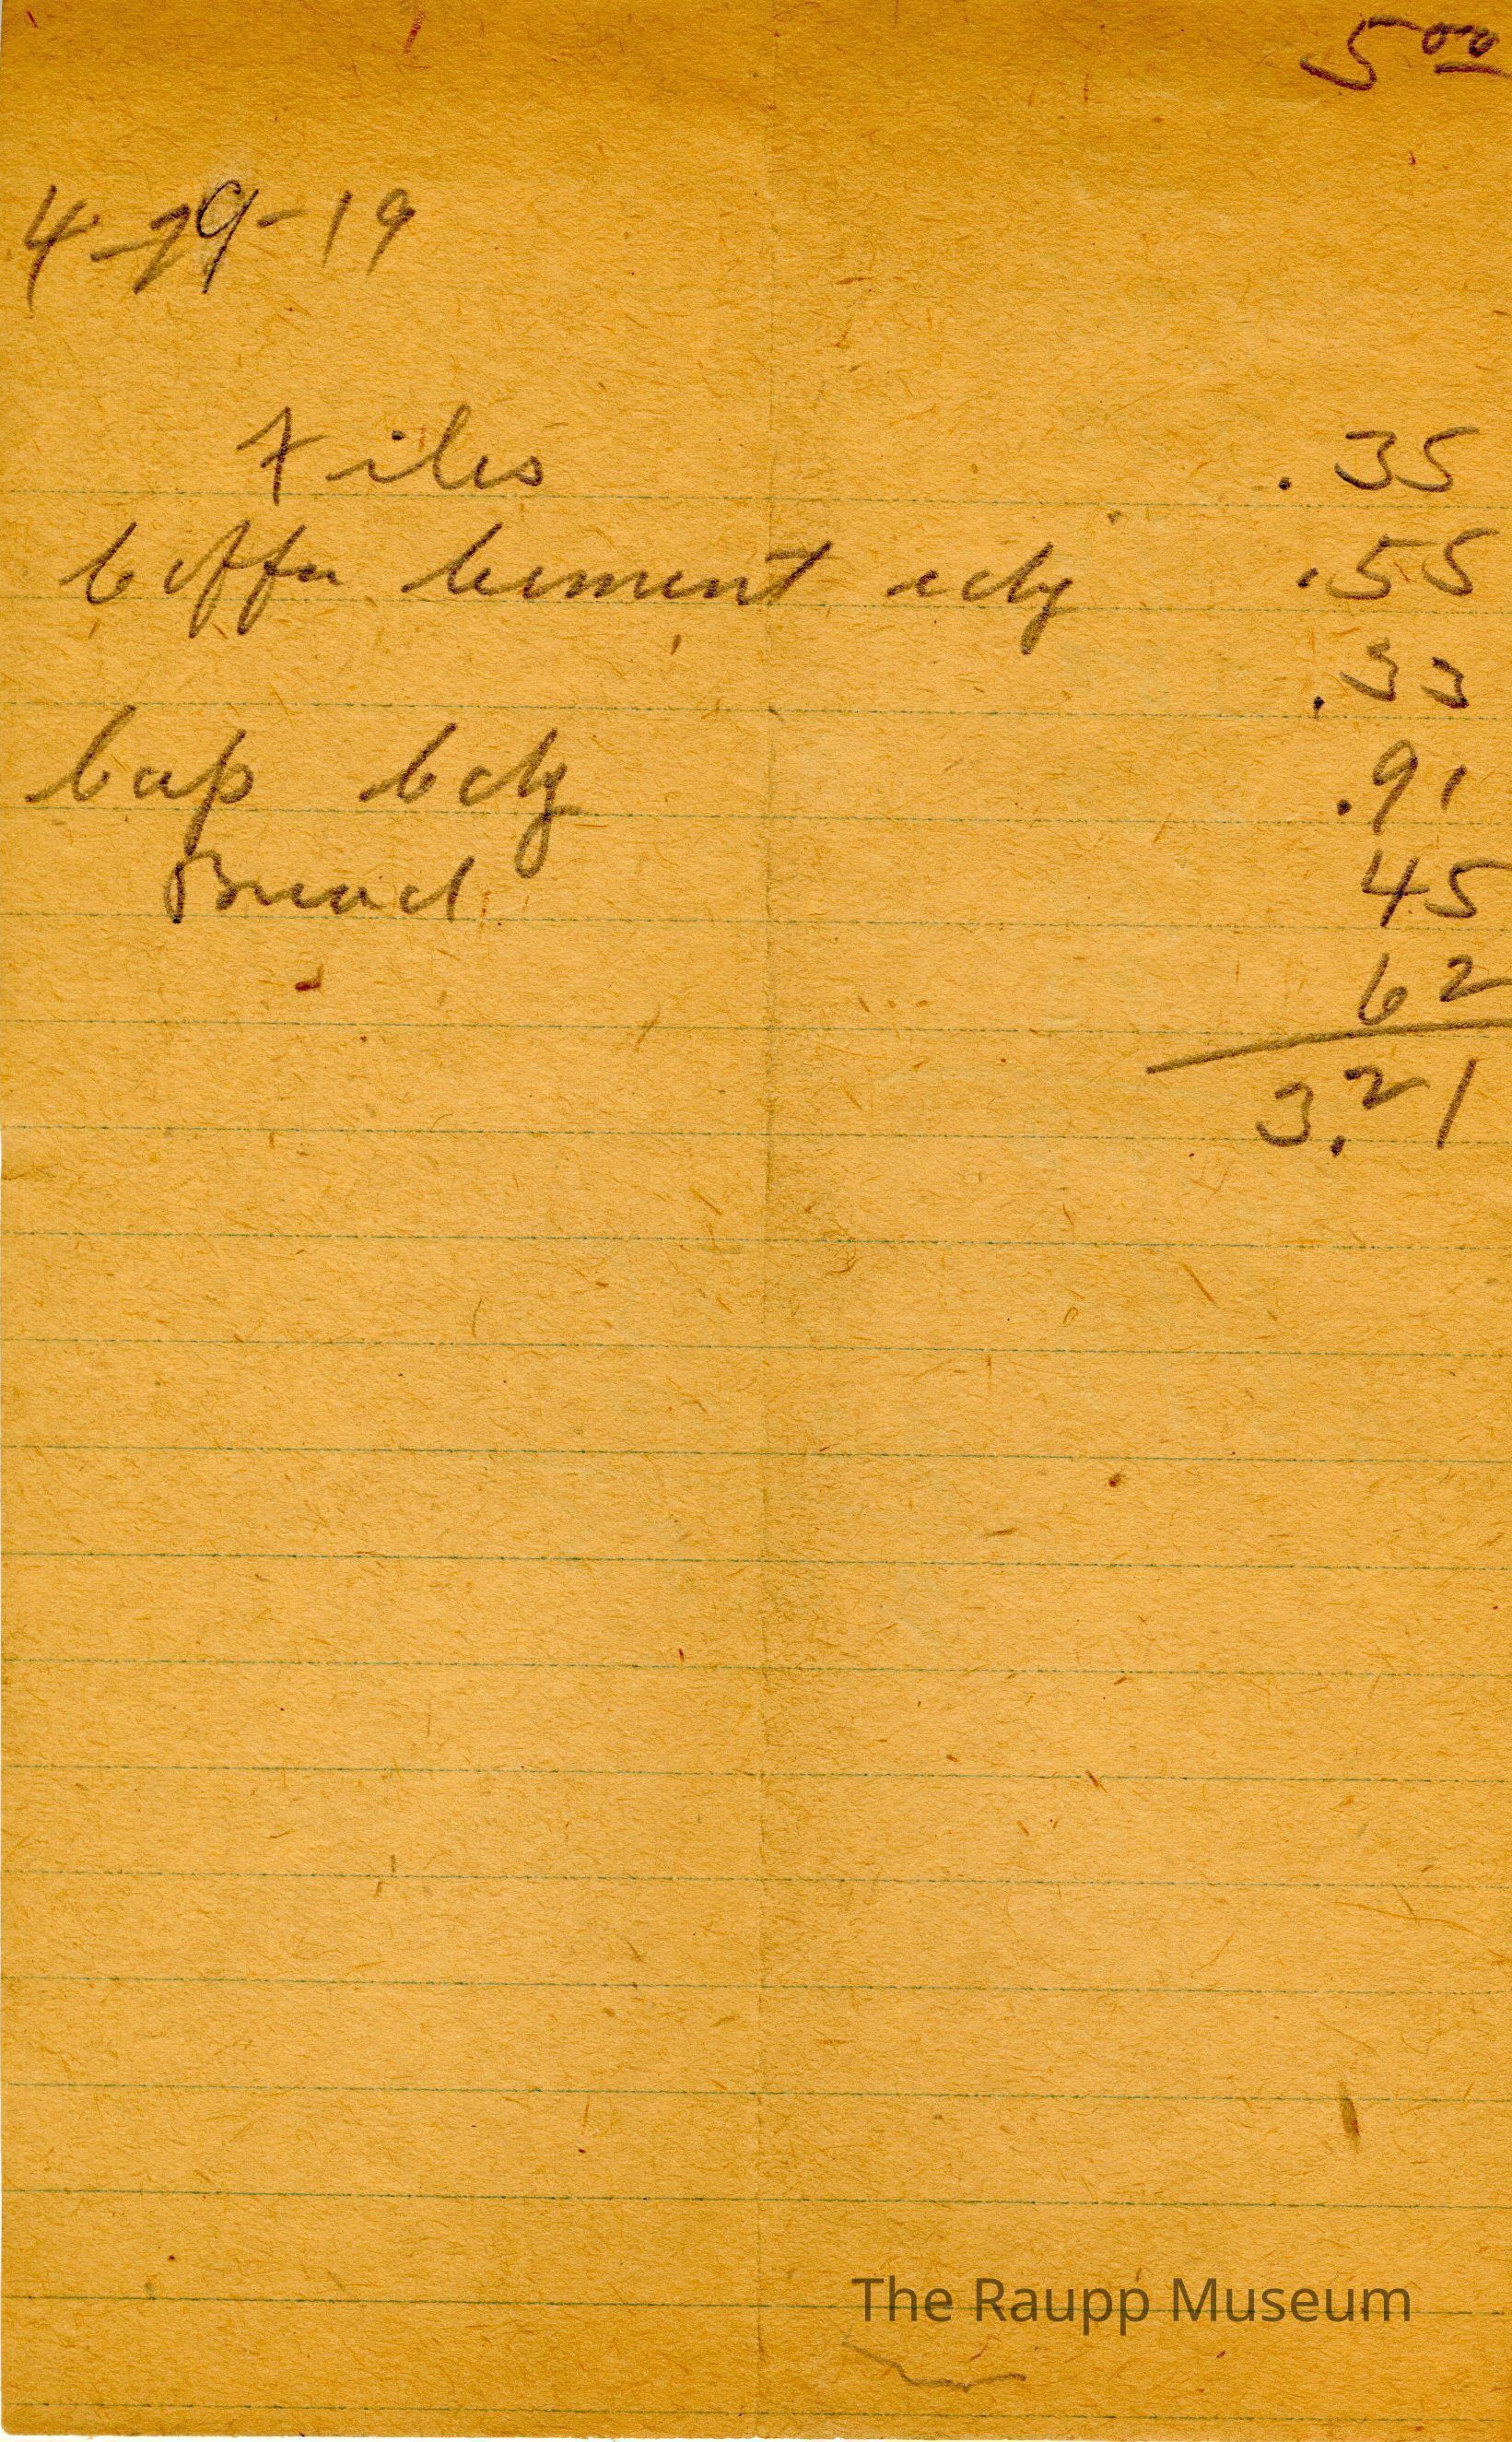 5 00
4-29-19
Files .35
Coffee Cement .55
.33
Cap .91
Bread 45
62
3.21
The Raupp Museum